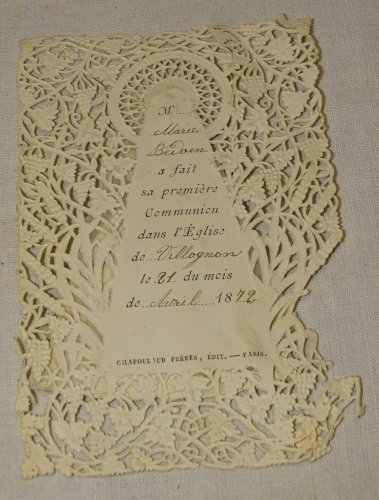 M.....
Marie
Bedoin
a fait
sa première
Communion
dans l'Église
de Villognon
le 21 du mois
de Avril 1872
CHAPOULAUD FRÈRES, ÉDIT. — PARIS.